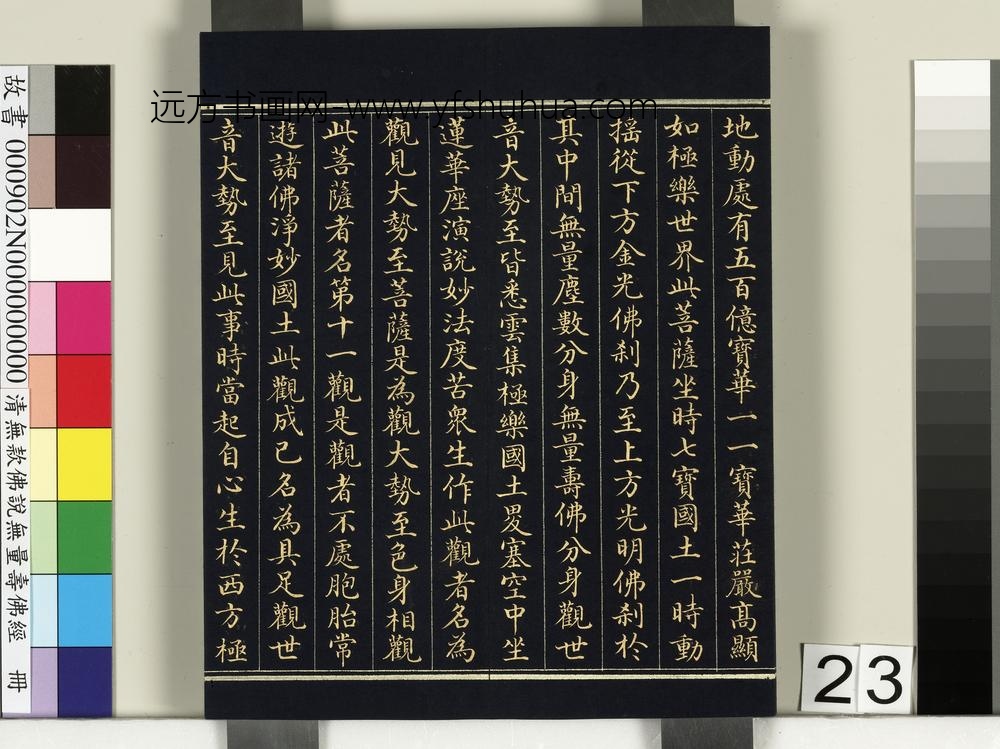 地動處有五百億寶華一一寶華莊嚴髙顯
如極樂世界此菩薩坐時七寶國土一時動
揺從下方金光佛刹乃至上方光明佛刹於
其中間無量塵數分身無量壽佛分身觀世
音大勢至皆悉雲集極樂國土畟塞空中坐
蓮華座演說妙法度苦衆生作此觀者名為
觀見大勢至菩薩是為觀大勢至色身相觀
此菩薩者名第十一觀是觀者不處胞胎常
遊諸佛淨妙國土此觀成已名為具足觀世
音大勢至見此事時當起自心生於西方極
远方书画网-www.yfshuhua.com
故書 000902N000000000 清無款佛說無量壽佛經 冊
23